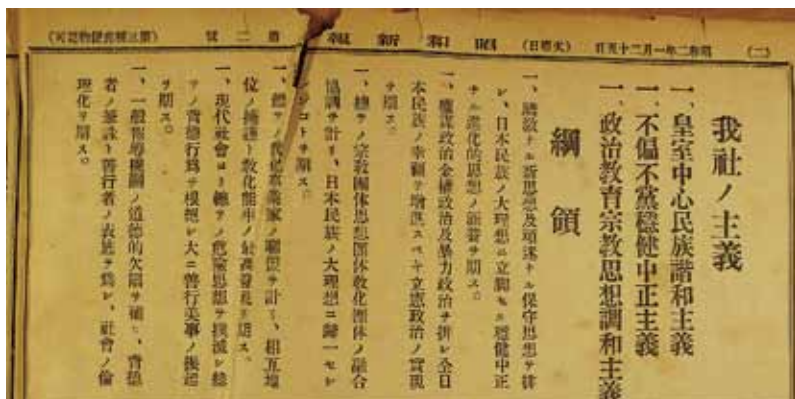 (二) 昭和二年一月二十五日 (火曜日) 昭和新報 第二號 (第三種郵便物認可)
我社ノ主義
一、皇室中心民族諧和主義
一、不偏不黨穩健中正主義
一、政治教育宗教思想調和主義
綱領
一、矯激ナル新思想及頑迷ナル保守思想ヲ排
シ、日本民族ノ大理想ニ立脚セル穩健中正
ナル進化的思想ノ涵養ヲ期ス。
一、權謀政治金權政治及暴力政治ヲ排シ全日
本民族ノ幸福ヲ增進スベキ立憲政治ノ實現
ヲ期ス。
一、總テノ宗敎團体思想團体敎化團体ノ融合
協調ヲ計リ、日本民族ノ大理想ニ歸一セシ
メンコトヲ期ス。
一、總テノ敎化事業家ノ聯盟ヲ計リ、相互地
位ノ擁護ト敎化能率ノ最善發現ヲ期ス。
一、現代社會ヨリ總テノ危險思想ヲ撲滅シ總
テノ背德行爲ヲ根絶シ大ニ善行美事ノ起
ヲ期ス。
一、一般報導機關ノ道德的欠陷ヲ補ヒ、背德
者ノ筆誅ト善行者ノ表旌ヲ爲シ、社會ノ倫
理化ヲ期ス。